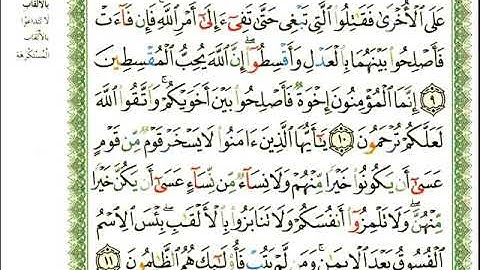 بالألقاب
لا تتداعوا
بالألقاب
المستكرهة
عَلَى ٱلْأُخْرَىٰ فَقَٰتِلُوا۟ ٱلَّتِى تَبْغِى حَتَّىٰ تَفِىٓءَ إِلَىٰٓ أَمْرِ ٱللَّهِ فَإِن فَآءَتْ
فَأَصْلِحُوا۟ بَيْنَهُمَا بِٱلْعَدْلِ وَأَقْسِطُوٓا۟ إِنَّ ٱللَّهَ يُحِبُّ ٱلْمُقْسِطِينَ
٩ إِنَّمَا ٱلْمُؤْمِنُونَ إِخْوَةٌ فَأَصْلِحُوا۟ بَيْنَ أَخَوَيْكُمْ وَٱتَّقُوا۟ ٱللَّهَ
لَعَلَّكُمْ تُرْحَمُونَ ١٠ يَٰٓأَيُّهَا ٱلَّذِينَ ءَامَنُوا۟ لَا يَسْخَرْ قَوْمٌ مِّن قَوْمٍ
عَسَىٰٓ أَن يَكُونُوا۟ خَيْرًا مِّنْهُمْ وَلَا نِسَآءٌ مِّن نِّسَآءٍ عَسَىٰٓ أَن يَكُنَّ خَيْرًا
مِّنْهُنَّ وَلَا تَلْمِزُوٓا۟ أَنفُسَكُمْ وَلَا تَنَابَزُوا۟ بِٱلْأَلْقَٰبِ بِئْسَ ٱلِٱسْمُ
ٱلْفُسُوقُ بَعْدَ ٱلْإِيمَٰنِ وَمَن لَّمْ يَتُبْ فَأُو۟لَٰٓئِكَ هُمُ ٱلظَّٰلِمُونَ ١١